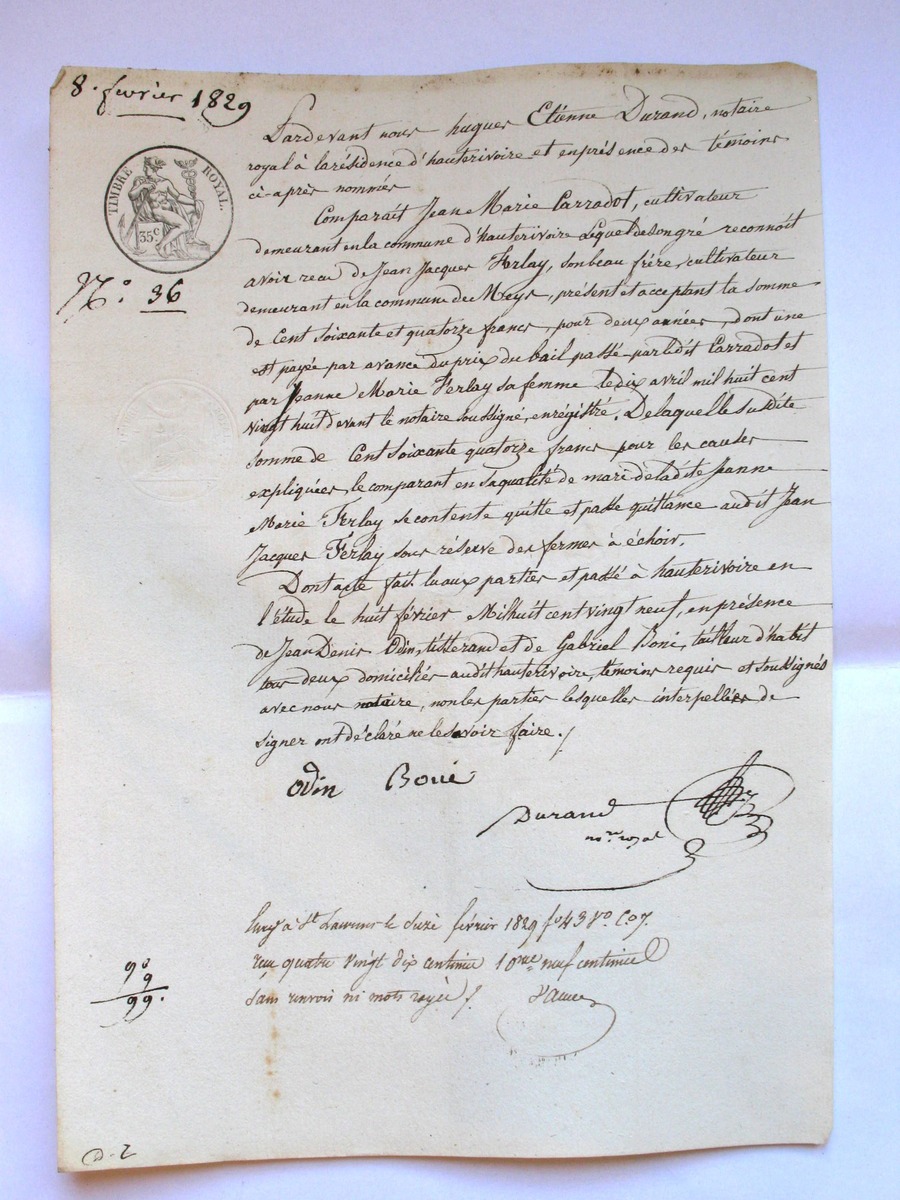 8. février 1829
TIMBRE ROYAL.
35 c
N.º 36
Pardevant nous hugues Etienne Durand, notaire
royal à la résidence d'hauterivoire et en présence des témoins
ci-après nommés
Comparait Jean Marie Carradot, cultivateur
demeurant en la commune d'hauterivoire Lequel de son gré reconnoit
avoir recu de Jean Jacques Ferlay, son beau frère, cultivateur
demeurant en la commune de Meys, présent et acceptant la somme
de Cent Soixante et quatorze francs, pour deux années, dont une
est payée par avance du prix du bail passé par ledit Carradot et
par Jeanne Marie Ferlay sa femme le dix avril mil huit cent
vingt huit devant le notaire soussigné, enrégistré. De laquelle susdite
somme de Cent Soixante quatorze francs pour les causes
expliquées, le comparant en sa qualité de mari de ladite Jeanne
Marie Ferlay se contente quitte et passe quittance audit Jean
Jacques Ferlay sous réserve des fermes à échoir.
Dont acte fait lu aux parties et passé à hauterivoire en
l'étude le huit février Mil huit cent vingt neuf, en présence
de Jean Denis Odin, titterand et de Gabriel Boué, tailleur d'habit
tous deux domiciliés audit hauterivoire, témoins requis et soussignés
avec nous notaire, non les parties lesquelles interpellées de
signer ont déclaré ne le savoir faire./
Odin Boué
Durand
nre royal
Enregé à St Laurent le Seize février 1829 fo 43 Vo. C.o 7.
reçu quatre vingt dix centimes 10me neuf centimes
sans renvoi ni mots rayés /.
90
9
99.